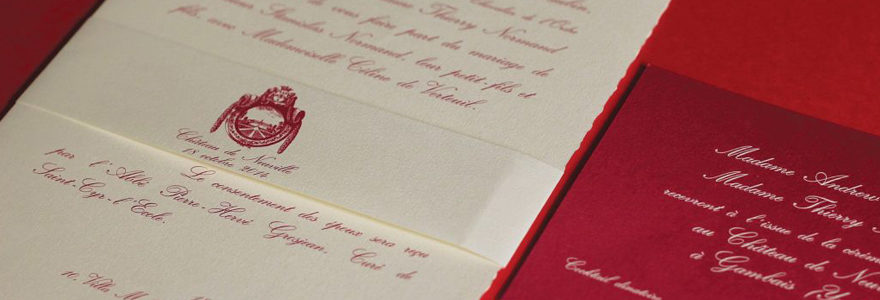 Chevalier de l'Ordre
de vous faire part du mariage de
Thierry Normand
Stanislas Normand, leur petit-fils et
fils, avec Mademoiselle Céline de Verteuil.
Château de Neuville
18 octobre 2014
Le consentement des époux sera reçu
par l'Abbé Pierre-Hervé Grosjean, Curé de
Saint-Cyr-l'Ecole.
10, Villa
Madame Andrew
Madame Thierry
recevront à l'issue de la
au Château de
à Gambais
Cocktail dînatoire